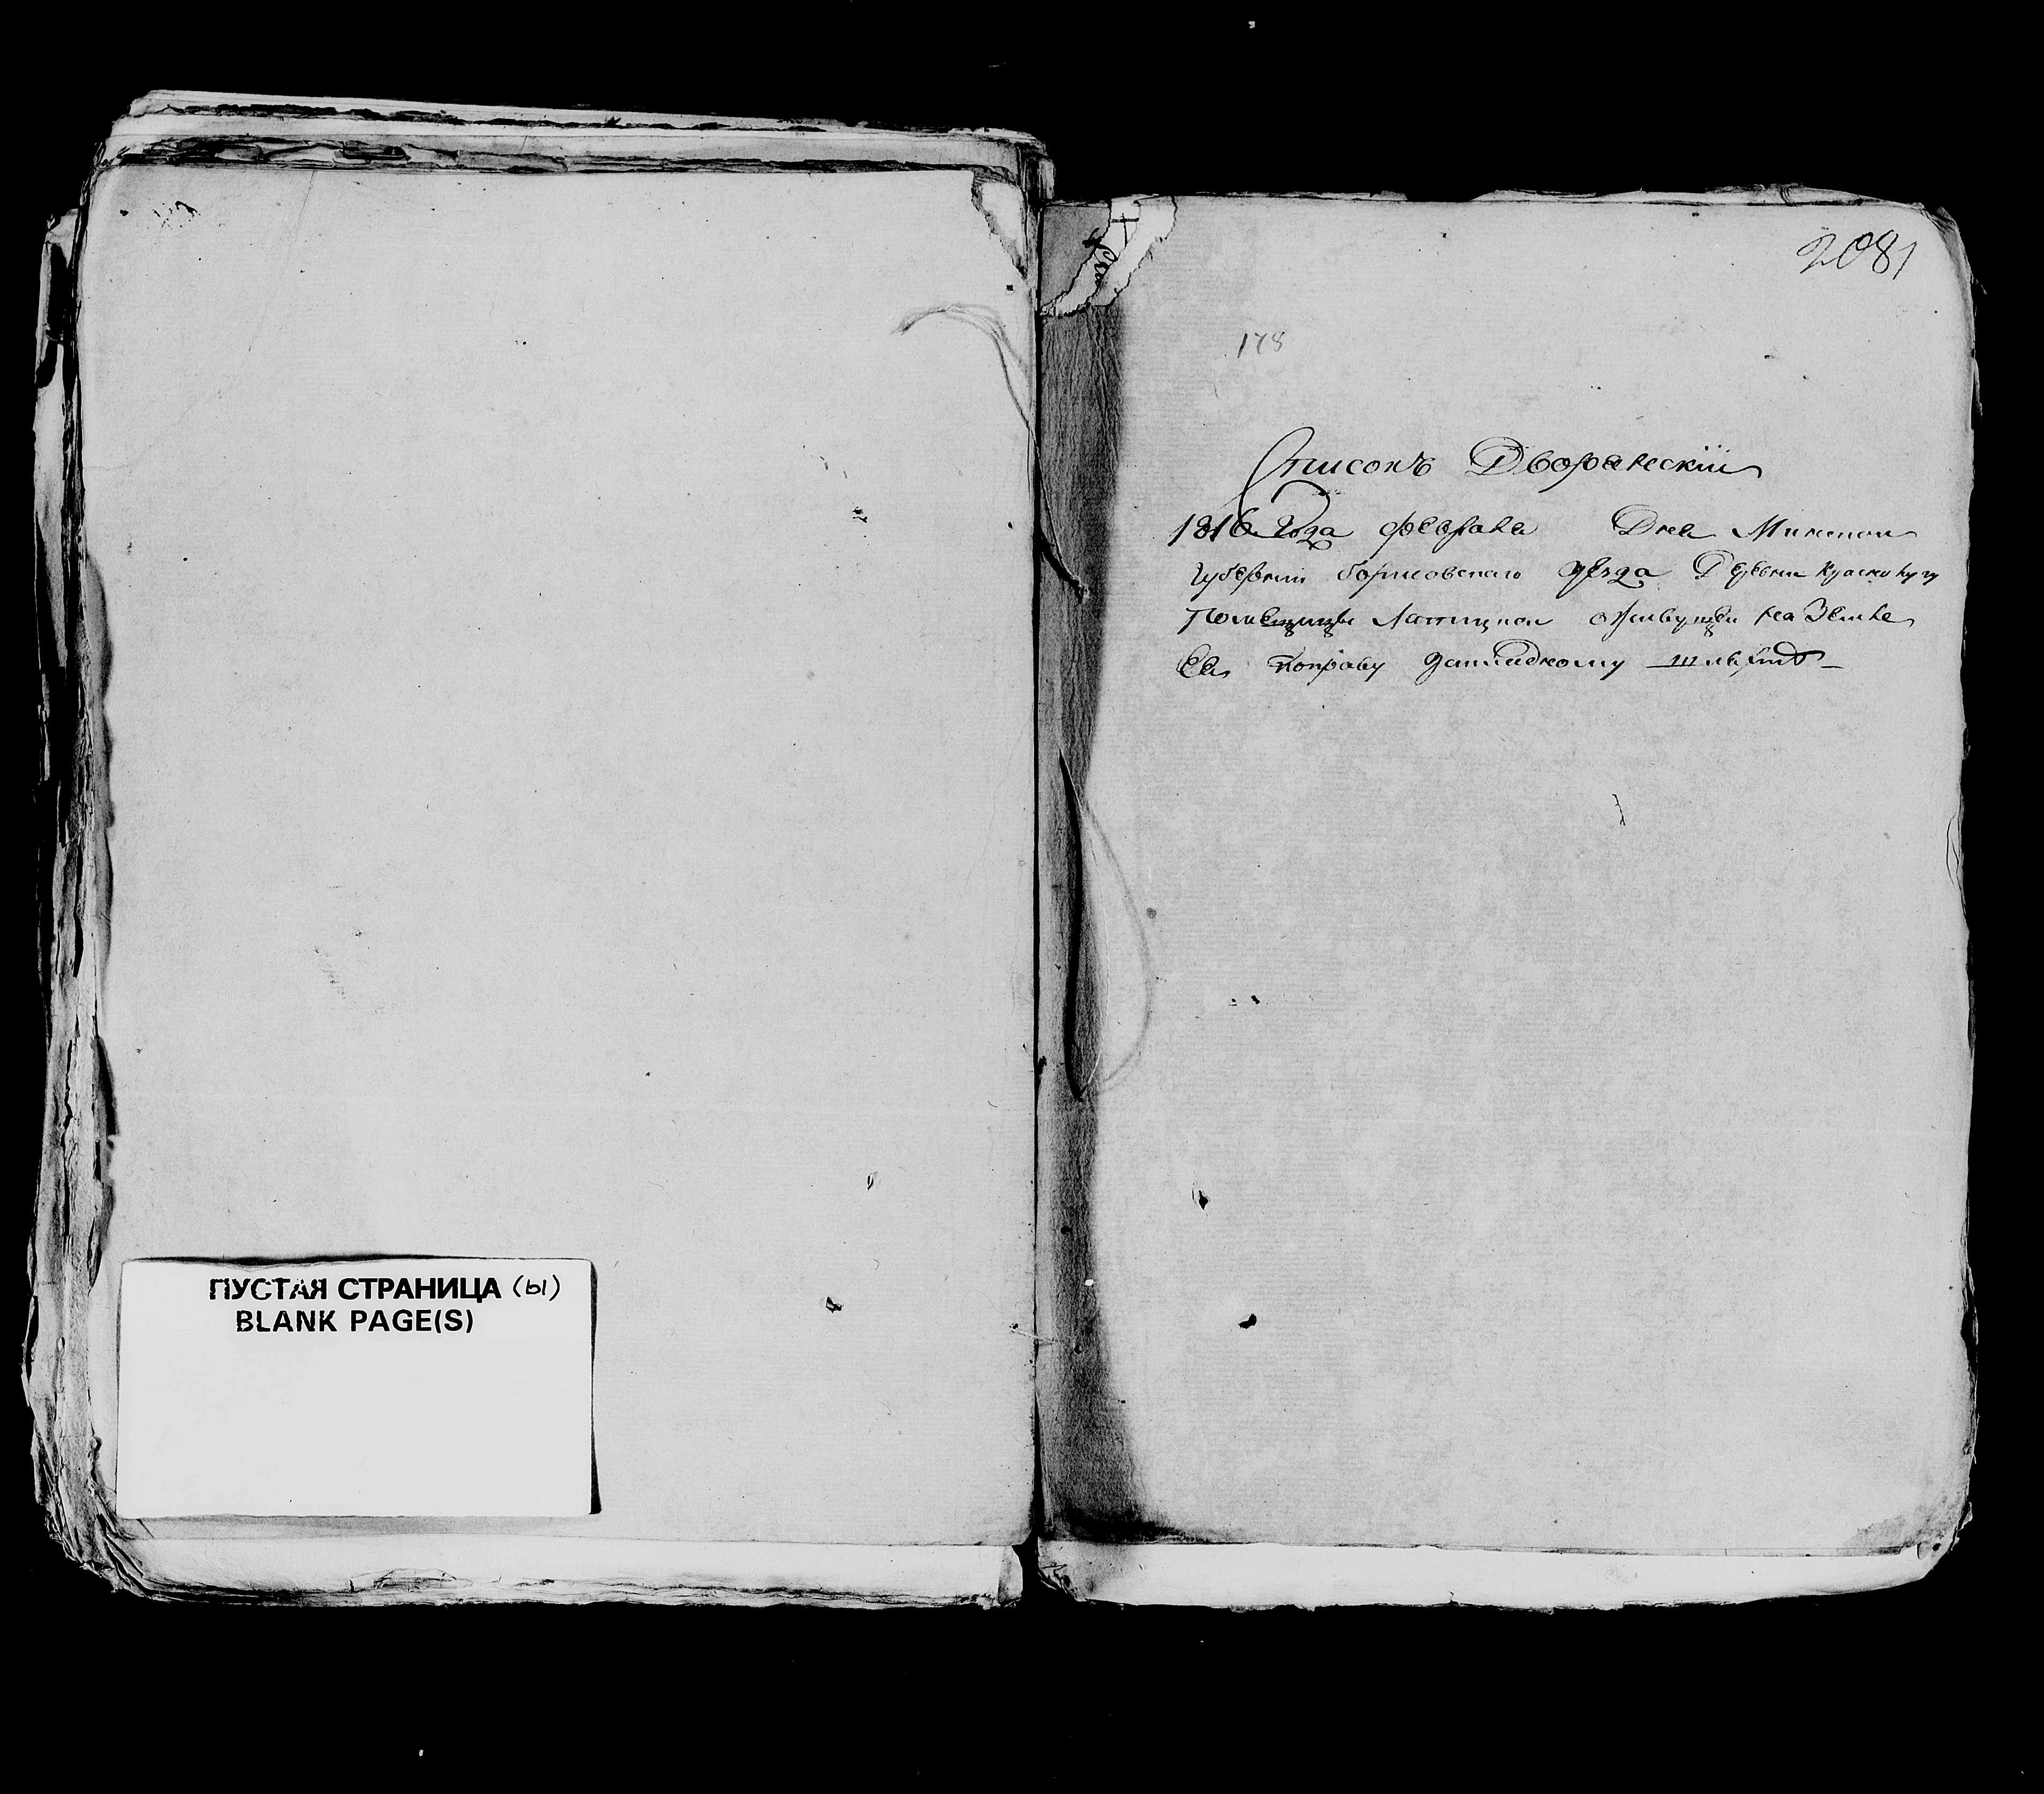 ПУСТАЯ СТРАНИЦА (ы)
BLANK PAGE(S)
2081
178
Списокъ Дворянскiй
1816 Года февраля Дня Минской
Губернiи борисовского уезда Деревни Краснолуку
Помещицы оживущей на Земле
Ея поправу